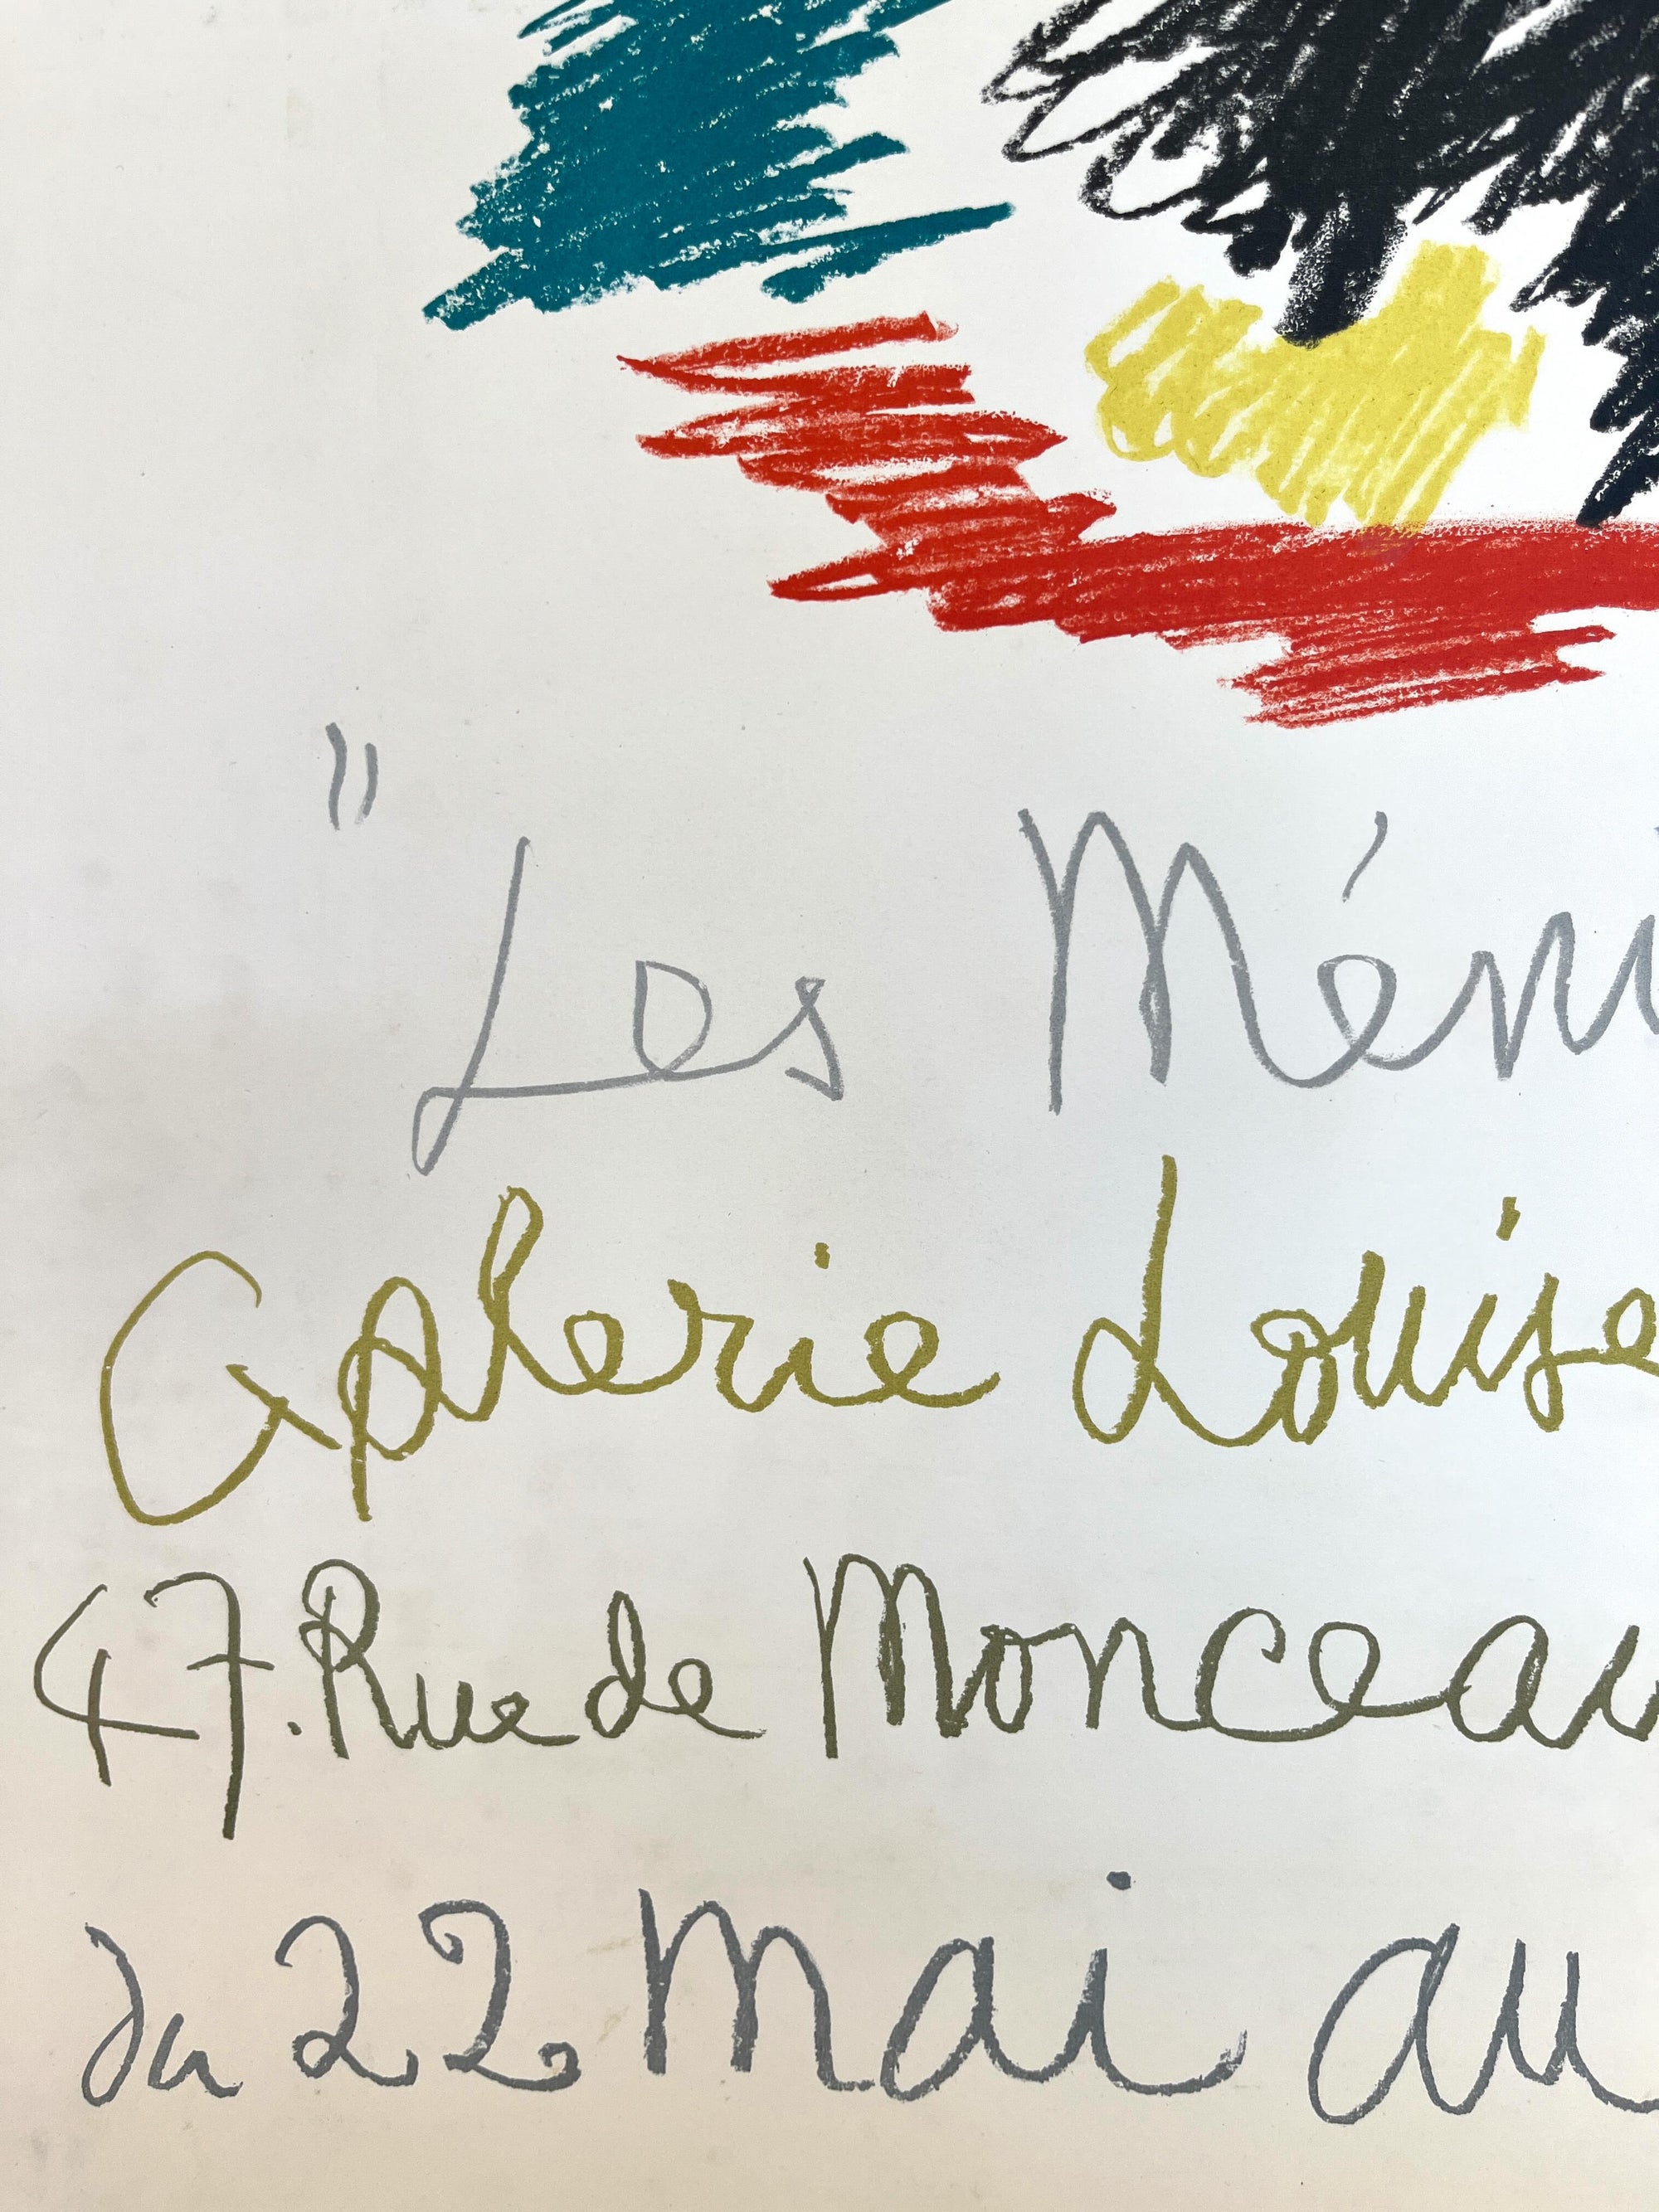 "Les Méni
Galerie Louise
47. Rue de Monceau
du 22 Mai au